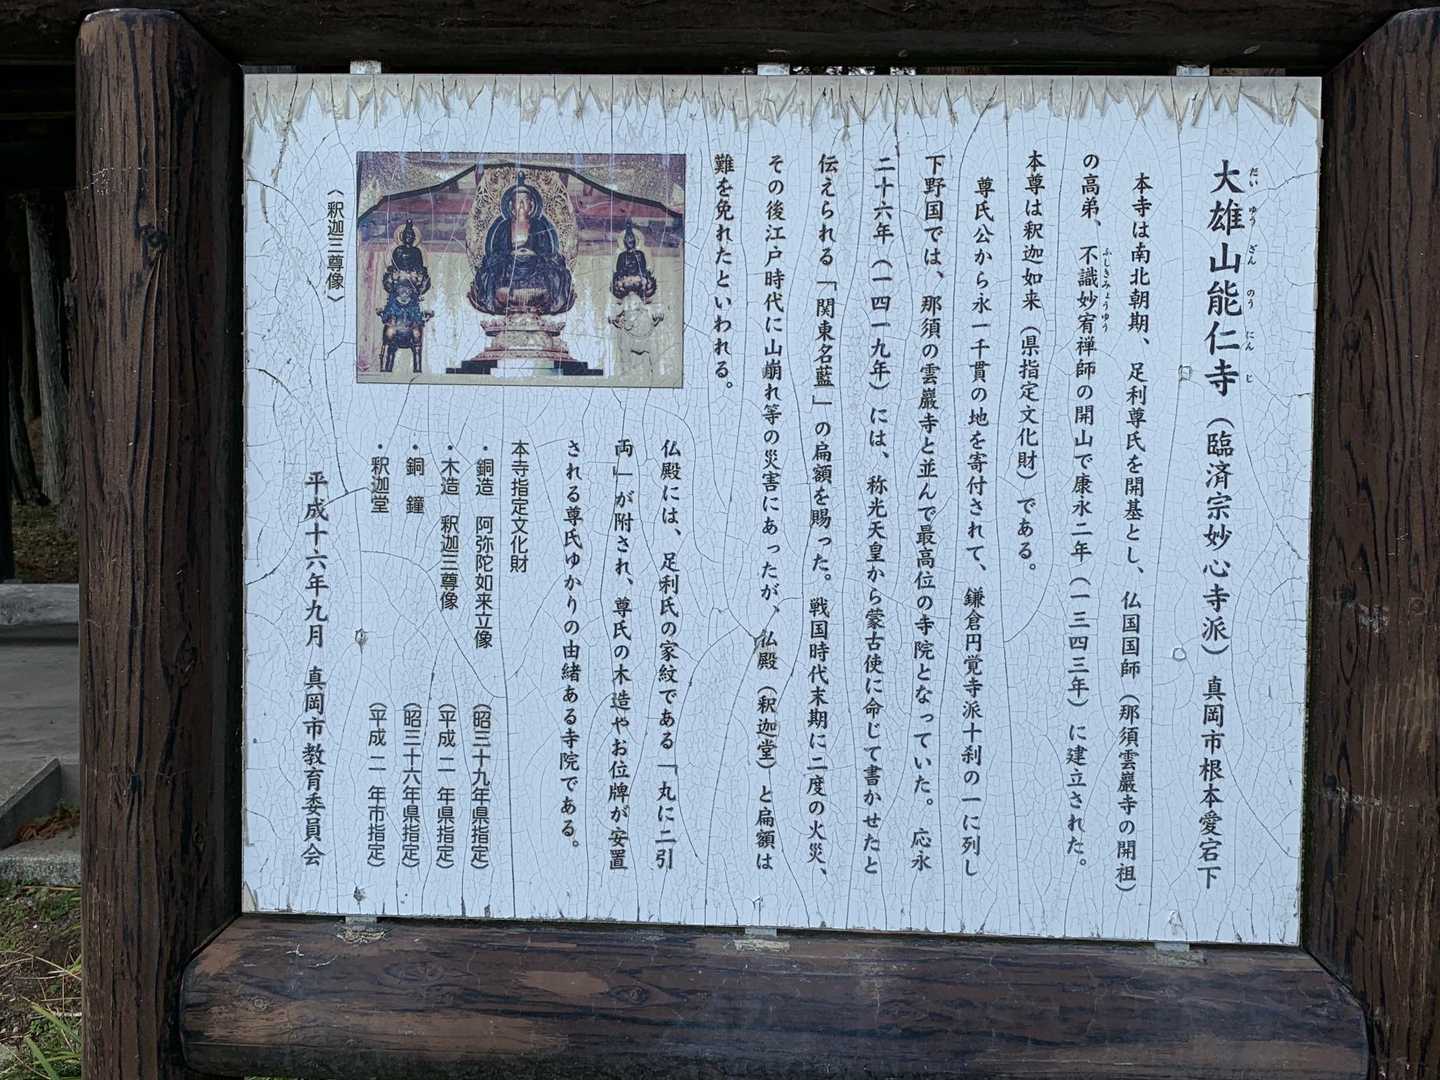 大雄山能仁寺（臨済宗妙心寺派）　真岡市根本愛宕下
だいゆうざんのうにんじ
本寺は南北朝期、足利尊氏を開基とし、仏国国師（那須雲巖寺の開祖）
の高弟、不識妙宥禅師の開山で康永二年（一三四三年）に建立された。
ふしきみょうゆう
本尊は釈迦如来（県指定文化財）である。
尊氏公から永一千貫の地を寄付されて、鎌倉円覚寺派十刹の一に列し
下野国では、那須の雲巖寺と並んで最高位の寺院となっていた。応永
二十六年（一四一九年）には、称光天皇から蒙古使に命じて書かせたと
伝えられる「関東名藍」の扁額を賜った。戦国時代末期に二度の火災、
その後江戸時代に山崩れ等の災害にあったが、仏殿（釈迦堂）と扁額は
難を免れたといわれる。
仏殿には、足利氏の家紋である「丸に二引
両」が附され、尊氏の木造やお位牌が安置
される尊氏ゆかりの由緒ある寺院である。
本寺指定文化財
・銅造　阿弥陀如来立像　（昭三十九年県指定）
・木造　釈迦三尊像　（平成二年県指定）
・銅　鐘　（昭三十六年県指定）
・釈迦堂　（平成二年市指定）
〈釈迦三尊像〉
平成十六年九月　真岡市教育委員会